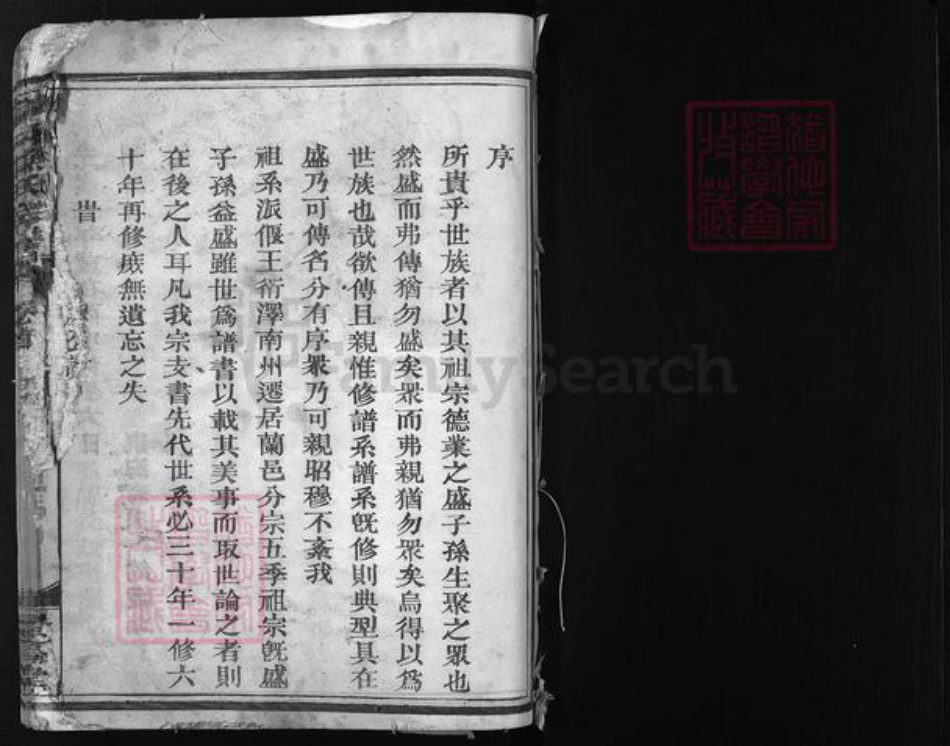 序
所貴乎世族者以其祖宗德業之盛子孫生聚之眾也
然盛而弗傳猶勿盛矣眾而弗親猶勿眾矣烏得以爲
世族也哉欲傳且親惟修譜系譜系旣修則典型具在
盛乃可傳名分有序眾乃可親昭穆不紊我
祖系派偃王衍澤南州遷居蘭邑分宗五季祖宗旣盛
子孫益盛雖世爲譜書以載其美事而取世論之者則
在後之人耳凡我宗支書先代世系必三十年一修六
十年再修庻無遺忘之失
旹
FamilySearch